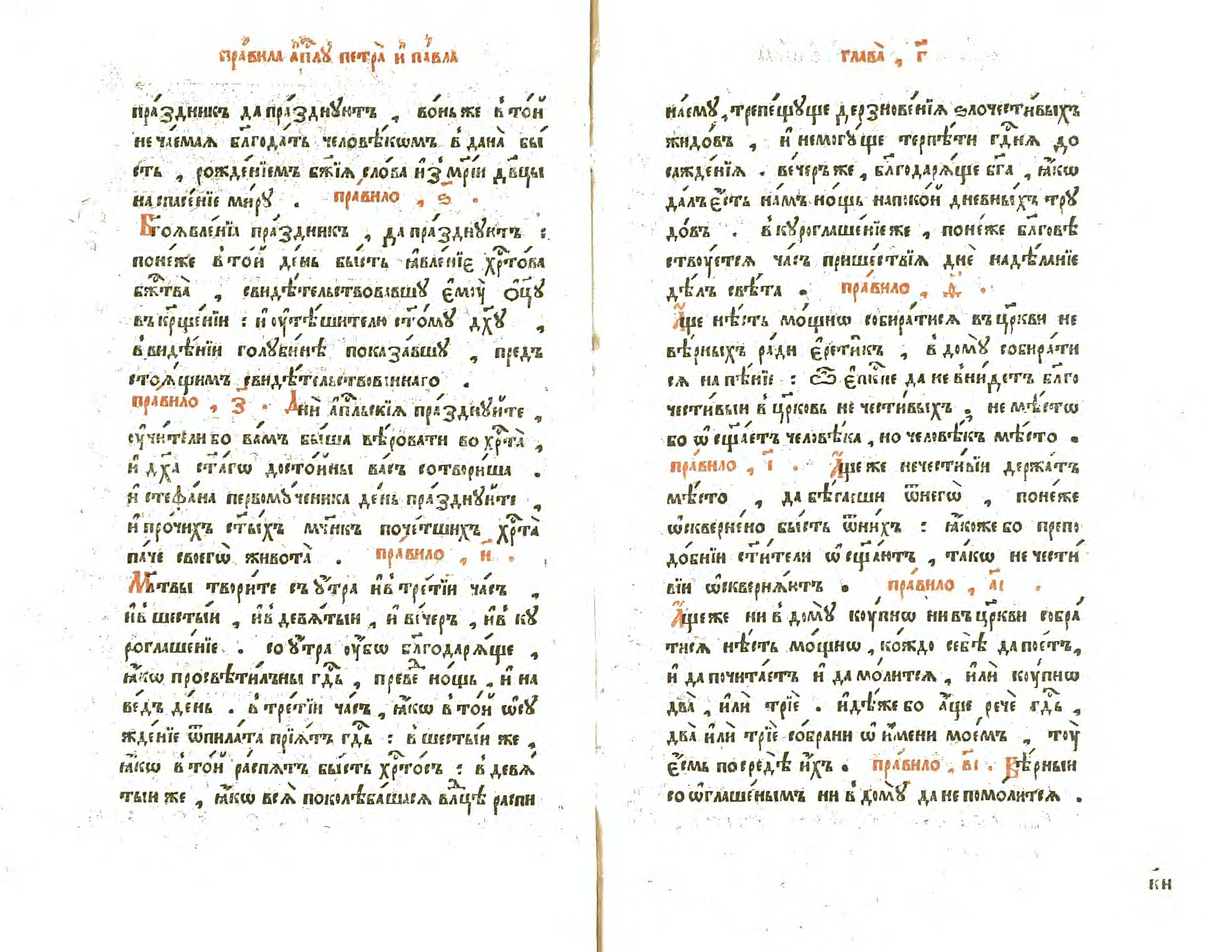 пра́вила а҆п҃лꙋ петра̀ и҆ па́вла
пра́здникъ да пра́зднꙋютъ , во́ньже в̾то́й
неча́емаѧ блг҃ода́ть человѣ́кѡмъ в̾дана̀ бы́
сть , рожде́нїемъ бж҃їѧ сло́ва и҆з̾ мр҃і́и дв҃цы
на спасе́нїе ми́рꙋ . пра́вило , ѕ҃ .
Бг҃оѧвле́нїѧ пра́здникъ , да пра́зднꙋютъ :
поне́же в̾то́й де́нь бы́сть ꙗ҆вле́нїе хрⷭ҇то́ва
бжⷭ҇тва̀ , свидѣ́тельствовавшꙋ є҆мꙋ̀ ѻ҆ц҃ꙋ̀
въ кр҃ще́нїи : и҆ ᲂу҆тѣ́шителю ст҃о́мꙋ дх҃ꙋ ,
в̾ видѣ́нїи голꙋби́нѣ показа́вшꙋ , предъ
стоѧ́щимъ свидѣ́тельствованнаго .
пра́вило , з҃ . Дни̑ а҆пⷭ҇льскїѧ пра́зднꙋйте ,
ᲂу҆чи́тели бо ва́мъ бы́ша вѣ́ровати во хрⷭ҇та̀ ,
и҆ дх҃а ст҃а́гѡ досто́йны ва́съ сотвори́ша .
и҆ стефа́на первомꙋ́ченика де́нь пра́зднꙋйте ,
и҆ про́чихъ ст҃ы́хъ мч҃нкъ поче́тшихъ хрⷭ҇та̀
па́че своегѡ̀ живота̀ . пра́вило , и҃ .
Мл҃твы твори́те съ ᲂу҆́тра и҆ в̾ тре́тїй ча́съ ,
и҆ в̾ шесты́й , и҆ в̾ девѧ́тый , и҆ ве́черъ , и҆ в̾ кꙋ
роглаше́нїе . со ᲂу҆́тра ᲂу҆́бѡ блг҃одарѧ́ще ,
ꙗ҆́кѡ просвѣти́лъ ны гдⷭ҇ь , преведѐ но́щь , и҆ на
ведъ де́нь . в̾ тре́тїй ча́съ , ꙗ҆́кѡ в̾ то́й ѡ҆сꙋ
жде́нїе ѿ пила́та прїѧ́тъ гдⷭ҇ь : в̾ шесты́й же ,
ꙗ҆́кѡ в̾ то́й распѧ́тъ бы́сть хрⷭ҇то́съ : в̾ девѧ́
тый же , ꙗ҆́кѡ всѧ̑ поколеба́шасѧ влⷣцѣ распи
глава̀ , г҃
на́емꙋ , трепе́щꙋще дерзнове́нїѧ ѕлочести́выхъ
жидо́въ , и҆ не могꙋ́ще терпѣ́ти гдⷭ҇нѧ до
сажде́нїѧ . ве́черъ же , блг҃одарѧ́ще бг҃а , ꙗ҆́кѡ
да́лъ є҆́сть на́мъ но́щь на поко́й дневны́хъ трꙋ
до́въ . в̾ кꙋроглаше́нїе же , поне́же блг҃овѣ
ствꙋ́етсѧ ча́съ прише́ствїѧ днѐ на дѣ́ланїе
дѣ́лъ свѣ́та . пра́вило , д҃ .
А҆́ще нѣ́сть мо́щнѡ собира́тисѧ въ цр҃кви не
вѣ́рныхъ ра́ди є҆рети́къ , в̾ домꙋ̀ собира́ти
сѧ на пѣ́нїе : ѽ є҆пⷭ҇кпе да не вни́детъ блг҃о
чести́вый в̾ цр҃ковь нечести́выхъ , не мѣ́сто
бо ѡ҆сщ҃а́етъ человѣ́ка , но человѣ́къ мѣ́сто .
пра́вило , і҃ . А҆́ще же нечести́вїи держа́тъ
мѣ́сто , да бѣ́гаеши ѿ негѡ̀ , поне́же
ѡ҆скверне́но бы́сть ѿ ни́хъ : ꙗ҆́коже бо препо
до́бнїи ст҃и́тели ѡ҆сщ҃а́ютъ , та́кѡ нечести́
вїи ѡ҆сквернѧ́ютъ . пра́вило , а҃і .
А҆́ще же ни в̾ домꙋ̀ кꙋ́пнѡ ни въ цр҃кви собра́
тисѧ нѣ́сть мо́щнѡ , ко́ждо себѣ̀ да пое́тъ ,
и҆ да почита́етъ и҆ да мо́литсѧ , и҆лѝ кꙋ́пнѡ
два̀ , и҆лѝ трїѐ . и҆дѣ́же бо а҆́ще речѐ гдⷭ҇ь ,
два̀ и҆лѝ трїѐ со́брани ѡ҆ и҆́мени мое́мъ , тꙋ̀
є҆́смь посредѣ̀ и҆́хъ . пра́вило , в҃і . Вѣ́рный
со ѡ҆глаше́нымъ ни в̾ домꙋ̀ да не помо́литсѧ .
к҃и